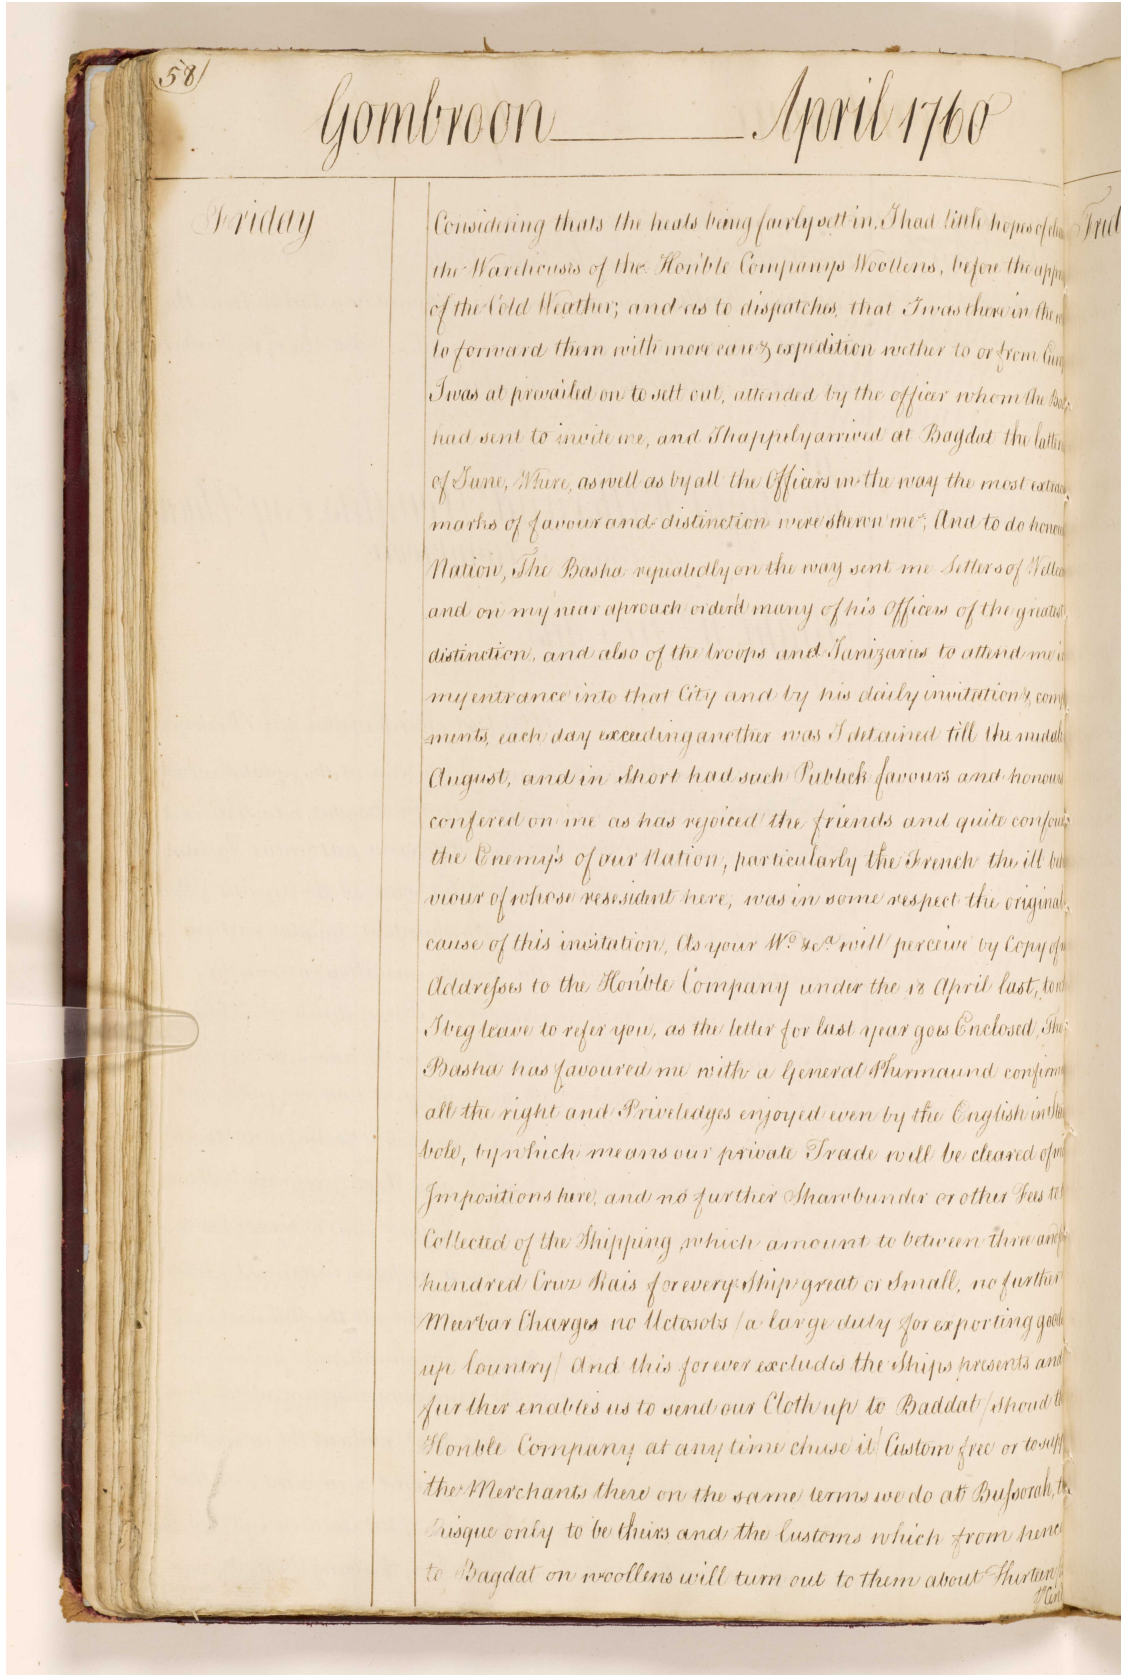 58
Gombroon April 1760
Friday
Considering thats the heats being fairly sett in, I had little hopes of
the Warehouses of the Honble Companys Woollens, before the
of the Cold Weather; and as to dispatches, that I was there in the
to forward them with more care & expedition wether to or from
I was at prevailed on to sett out, attended by the officer whom the
had sent to invite me, and I happely arrived at Bagdat the latter
of June, Where, as well as by all the Officers in the way the most
marks of favour and distinction were shewn me; And to do
Nation, The Basha repeatedly on the way sent me Letters of
and on my near aproach order'd many of his Officers of the greatest
distinction, and also of the troops and Janizaries to attend me
my entrance into that City and by his daily invitation &
ments, each day exceeding another was I detained till the
August, and in Short had such Publick favours and honours
confered on me as has rejoiced the friends and quite
the Enemy's of our Nation, particularly the French the ill
viour of whose resesident here, was in some respect the original
cause of this invitation, As your Wo. &ca. will perceive by Copy of
Addresses to the Honble Company under the 18 April last, to
I beg leave to refer you, as the letter for last year goes Enclosed, The
Basha has favoured me with a General Phurmaund
all the right and Priveledges enjoyed even by the English in
bole, by which means our private Trade will be cleared of
Impositions here, and no further Shawbunder or other Fees to
Collected of the Shipping, which amount to between three and
hundred Cruz Rais for every Ship great or Small, no further
Meerbar Charges no Uctosobs / a large duty for exporting goods
up Country / And this forever excludes the Ships presents and
further enables us to send our Cloth up to Baddat / Shoud the
Honble Company at any time chuse it / Custom free or to
the Merchants there on the same terms we do at Bussorah, the
Risque only to be theirs and the Customs which from hence
to Bagdat on woollens will turn out to them about Thirteen